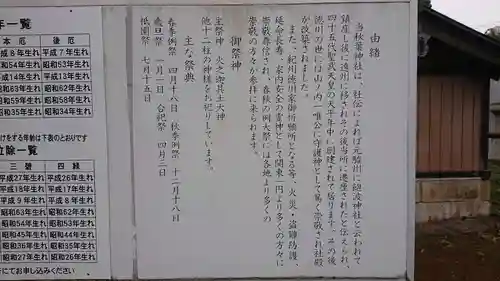 由緒
当秋葉神社は、社伝によれば元駿州に
鎮座し後に遠州に移されその後当所に遷座されたと伝えられ、
四十五代聖武天皇の天平年中に創建されて居ります。その後
徳川の世に
が改築されました。
また、紀州徳川家御祈願所となる等、火災、盗難防護、
延命長寿、家内安全の霊神として関東一円より多くの方々に
崇敬尊崇され、春秋の例大祭には各地より多くの
崇敬の方々が参拝に来られます。
御祭神
主祭神 火之迦具土大神
他十二柱の神様をお祀りしています。
主な祭典
春季例祭 四月十八日 秋季例祭 十二月十八日
歳旦祭 一月一日 合祀祭 四月三日
祇園祭 七月十五日
年生れ一覧
本厄 後厄
平成8年生れ 平成7年生れ
昭和54年生れ 昭和53年生れ
平成14年生れ 平成13年生れ
昭和63年生れ 昭和62年生れ
昭和59年生れ 昭和58年生れ
昭和35年生れ 昭和34年生れ
けをする年齢は下表のとおりです
位除一覧
三碧 四緑
平成27年生れ 平成26年生れ
平成18年生れ 平成17年生れ
昭和63年生れ 昭和62年生れ
昭和54年生れ 昭和53年生れ
昭和45年生れ 昭和44年生れ
昭和36年生れ 昭和35年生れ
昭和27年生れ 昭和26年生れ
にてお申し込みください